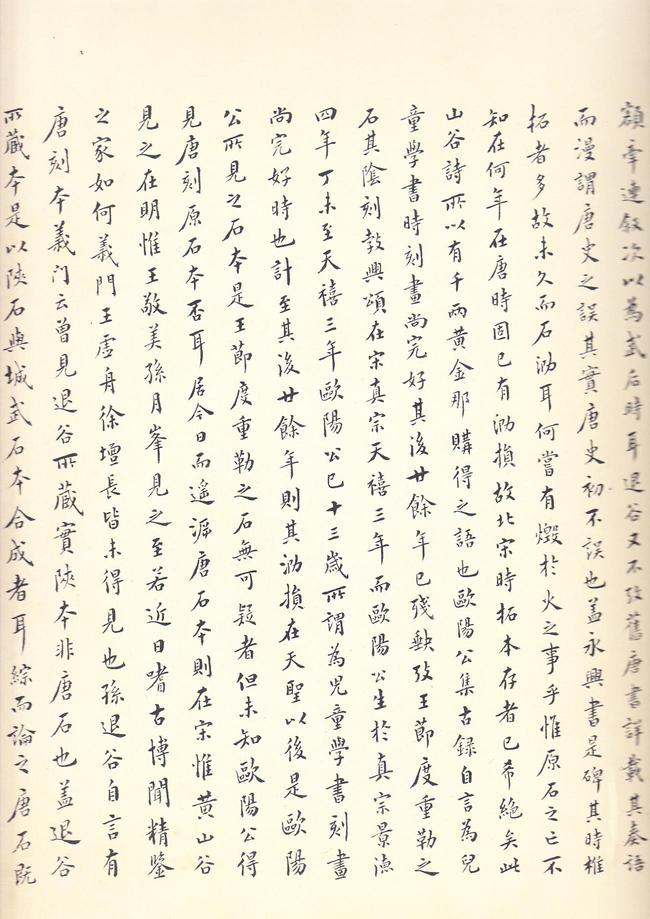 額牽連敘次以為武后時耳退谷又不攷舊唐書詳載其奏語
而漫謂唐史之誤其實唐史初不誤也蓋永興書是碑其時椎
拓者多故未久而石泐耳何嘗有燬於火之事乎惟原石之亡不
知在何年在唐時固已有泐損故北宋時拓本存者已希絕矣此
山谷詩所以有千兩黃金那購得之語也歐陽公集古錄自言為兒
童學書時刻畫尚完好其後廿餘年已殘缺攷王節度重勒之
石其陰刻敦興頌在宋真宗天禧三年而歐陽公生於真宗景德
四年丁未至天禧三年歐陽公已十三歲所謂為兒童學書刻畫
尚完好時也計至其後廿餘年則其泐損在天聖以後是歐陽
公所見之石本是王節度重勒之石無可疑者但未知歐陽公得
見唐刻原石本否耳居今日而遙泝唐石本則在宋惟黃山谷
見之在明惟王敬美孫月峯見之至若近日嗜古博聞精鑒
之家如何義門王虛舟徐壇長皆未得見也孫退谷自言有
唐刻本義门云曾見退谷所藏實陝本非唐石也蓋退谷
所藏本是以陝石與城武石本合成者耳綜而論之唐石既